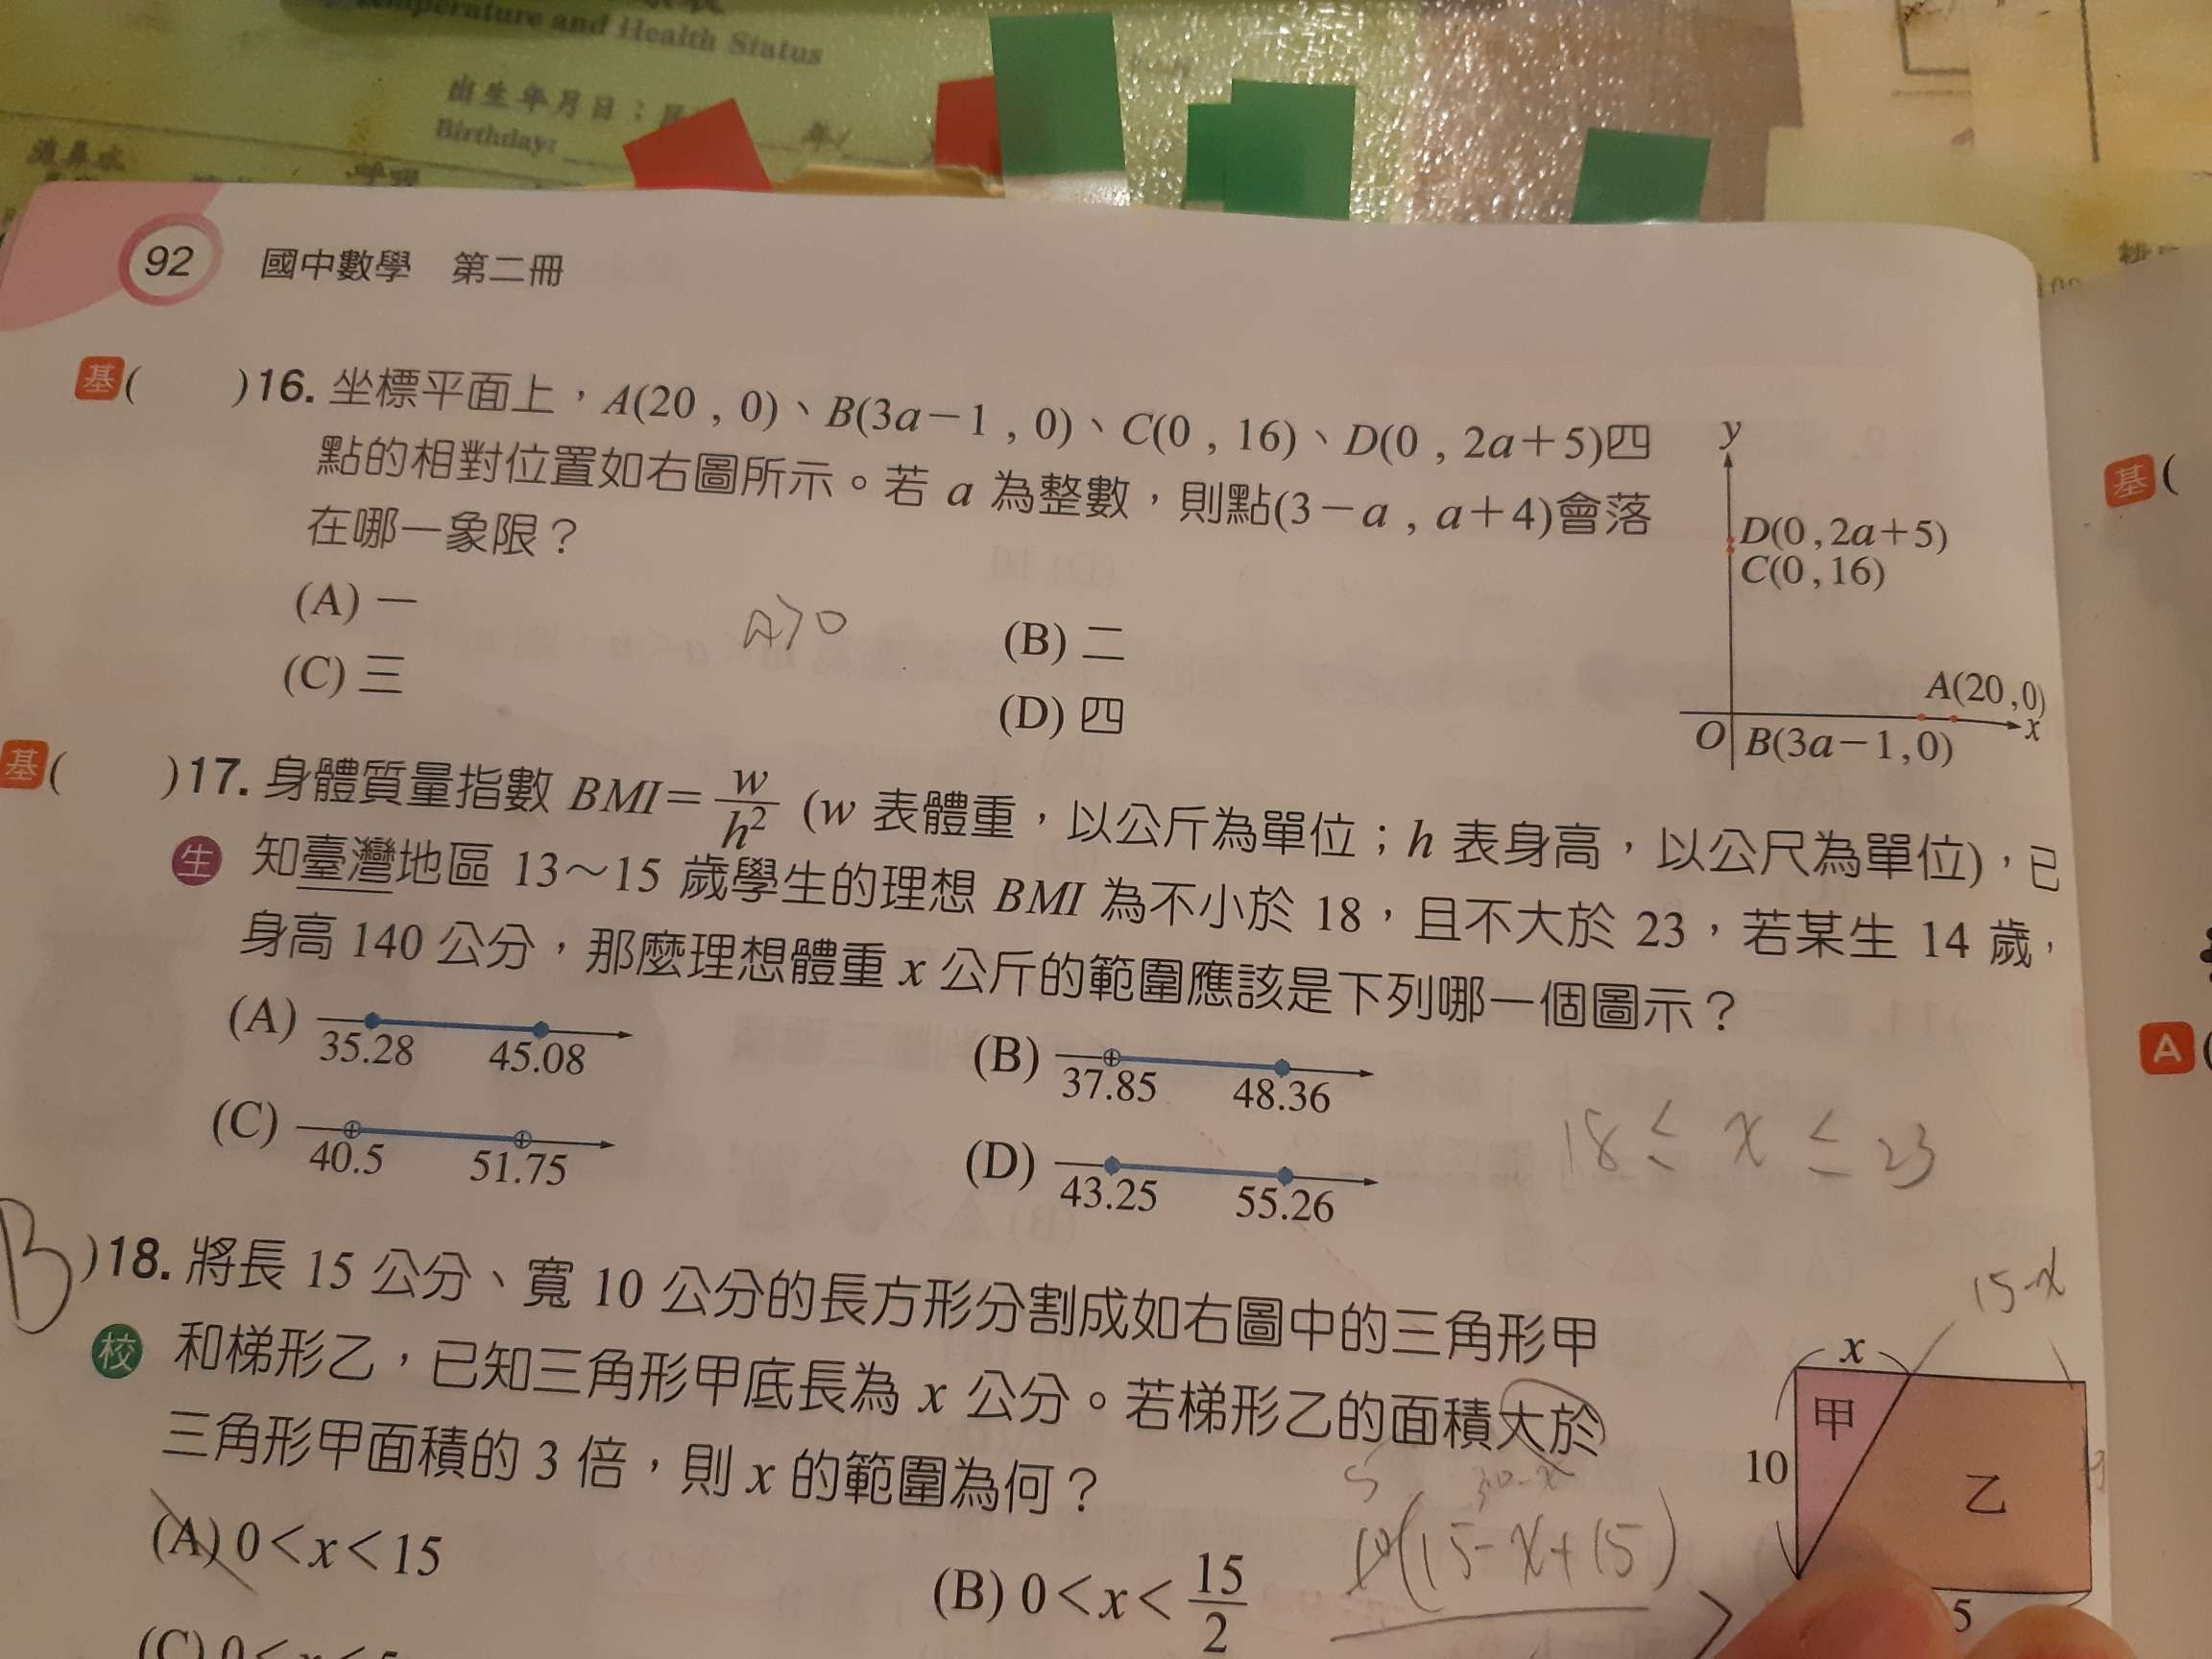 Temperature and Health Status
出生年月日：民
年
Birthday:
流鼻水
呼吸
92
國中數學 第二冊
基( )16. 坐標平面上，A(20 , 0)、B(3a－1 , 0)、C(0 , 16)、D(0 , 2a＋5)四
點的相對位置如右圖所示。若 a 為整數，則點(3－a , a＋4)會落
在哪一象限？
(A) 一
(B) 二
(C) 三
(D) 四
A>0
y
D(0 , 2a＋5)
C(0 , 16)
A(20 , 0)
x
O
B(3a－1 , 0)
基(
基( )17. 身體質量指數 BMI＝w/h² (w 表體重，以公斤為單位；h 表身高，以公尺為單位)，已
生 知臺灣地區 13～15 歲學生的理想 BMI 為不小於 18，且不大於 23，若某生 14 歲，
身高 140 公分，那麼理想體重 x 公斤的範圍應該是下列哪一個圖示？
(A) 35.28 45.08
(B) 37.85 48.36
(C) 40.5 51.75
(D) 43.25 55.26
18 ≤ x ≤ 23
A(
B )18. 將長 15 公分、寬 10 公分的長方形分割成如右圖中的三角形甲
校 和梯形乙，已知三角形甲底長為 x 公分。若梯形乙的面積大於
三角形甲面積的 3 倍，則 x 的範圍為何？
(A) 0＜x＜15
(B) 0＜x＜15/2
15-x
x
甲
10
乙
5
5
30-x
10(15-x+15)
>